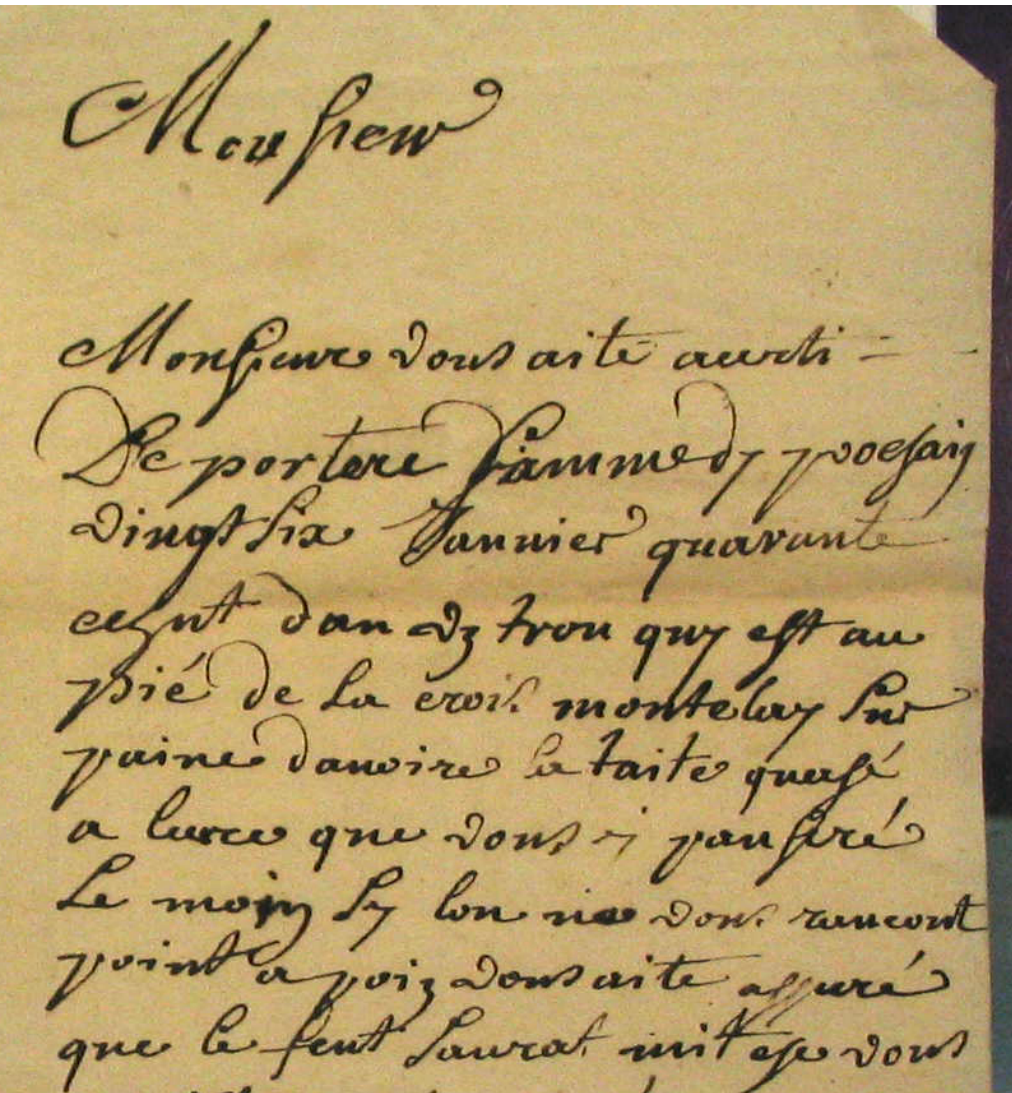 Monsieur
Monsieure vous aite averti =
De portere Sammedy procsain
vingt six Janvier quarante
ceznt dan un trou quy est au
pié de la crois montelay sur
paine davoire la taite quasé
a lurce que vous i panseré
Le moin sy lon ne vous rancont
point a poiz vous aite assuré
que le feut saurat mit ese vous